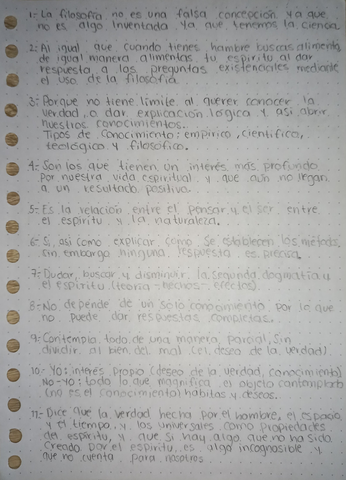 1.- La filosofía no es una falsa concepción ya que
no es algo inventada ya que tenemos la ciencia.
2.- Al igual que cuando tienes hambre buscas alimento,
de igual manera alimentas tu espíritu al dar
respuesta a las preguntas existenciales mediante
el uso de la filosofía.
3.- Porque no tiene límite al querer conocer la
verdad, o dar explicación lógica y así abrir
nuestros conocimientos.
Tipos de conocimiento: empírico, científico,
teológico y filosófico.
4.- Son los que tienen un interés más profundo
por nuestra vida espiritual y que aún no llegan
a un resultado positivo.
5.- Es la relación entre el pensar y el ser, entre
el espíritu y la naturaleza.
6.- Si, así como explicar, como se establecen los métodos
sin embargo ninguna respuesta es precisa.
7.- Dudar, buscar y disminuir la segunda dogmática y
el espíritu. (teoría - hechos - efectos).
8.- No depende de un solo conocimiento por lo que
no puede dar respuestas completas.
9.- Contempla todo de una manera parcial, sin
dividir al bien del mal (el deseo de la verdad)
10.- Yo: interés propio (deseo de la verdad, conocimiento)
No-yo: todo lo que magnifica el objeto contemplado
(no es el conocimiento) hábitos y deseos.
11.- Dice que la verdad hecha por el hombre, el espacio
y el tiempo y los universales como propiedades
del espíritu, y que si hay algo que no ha sido
creado por el espíritu es algo incognosible y
que no cuenta para nosotros.